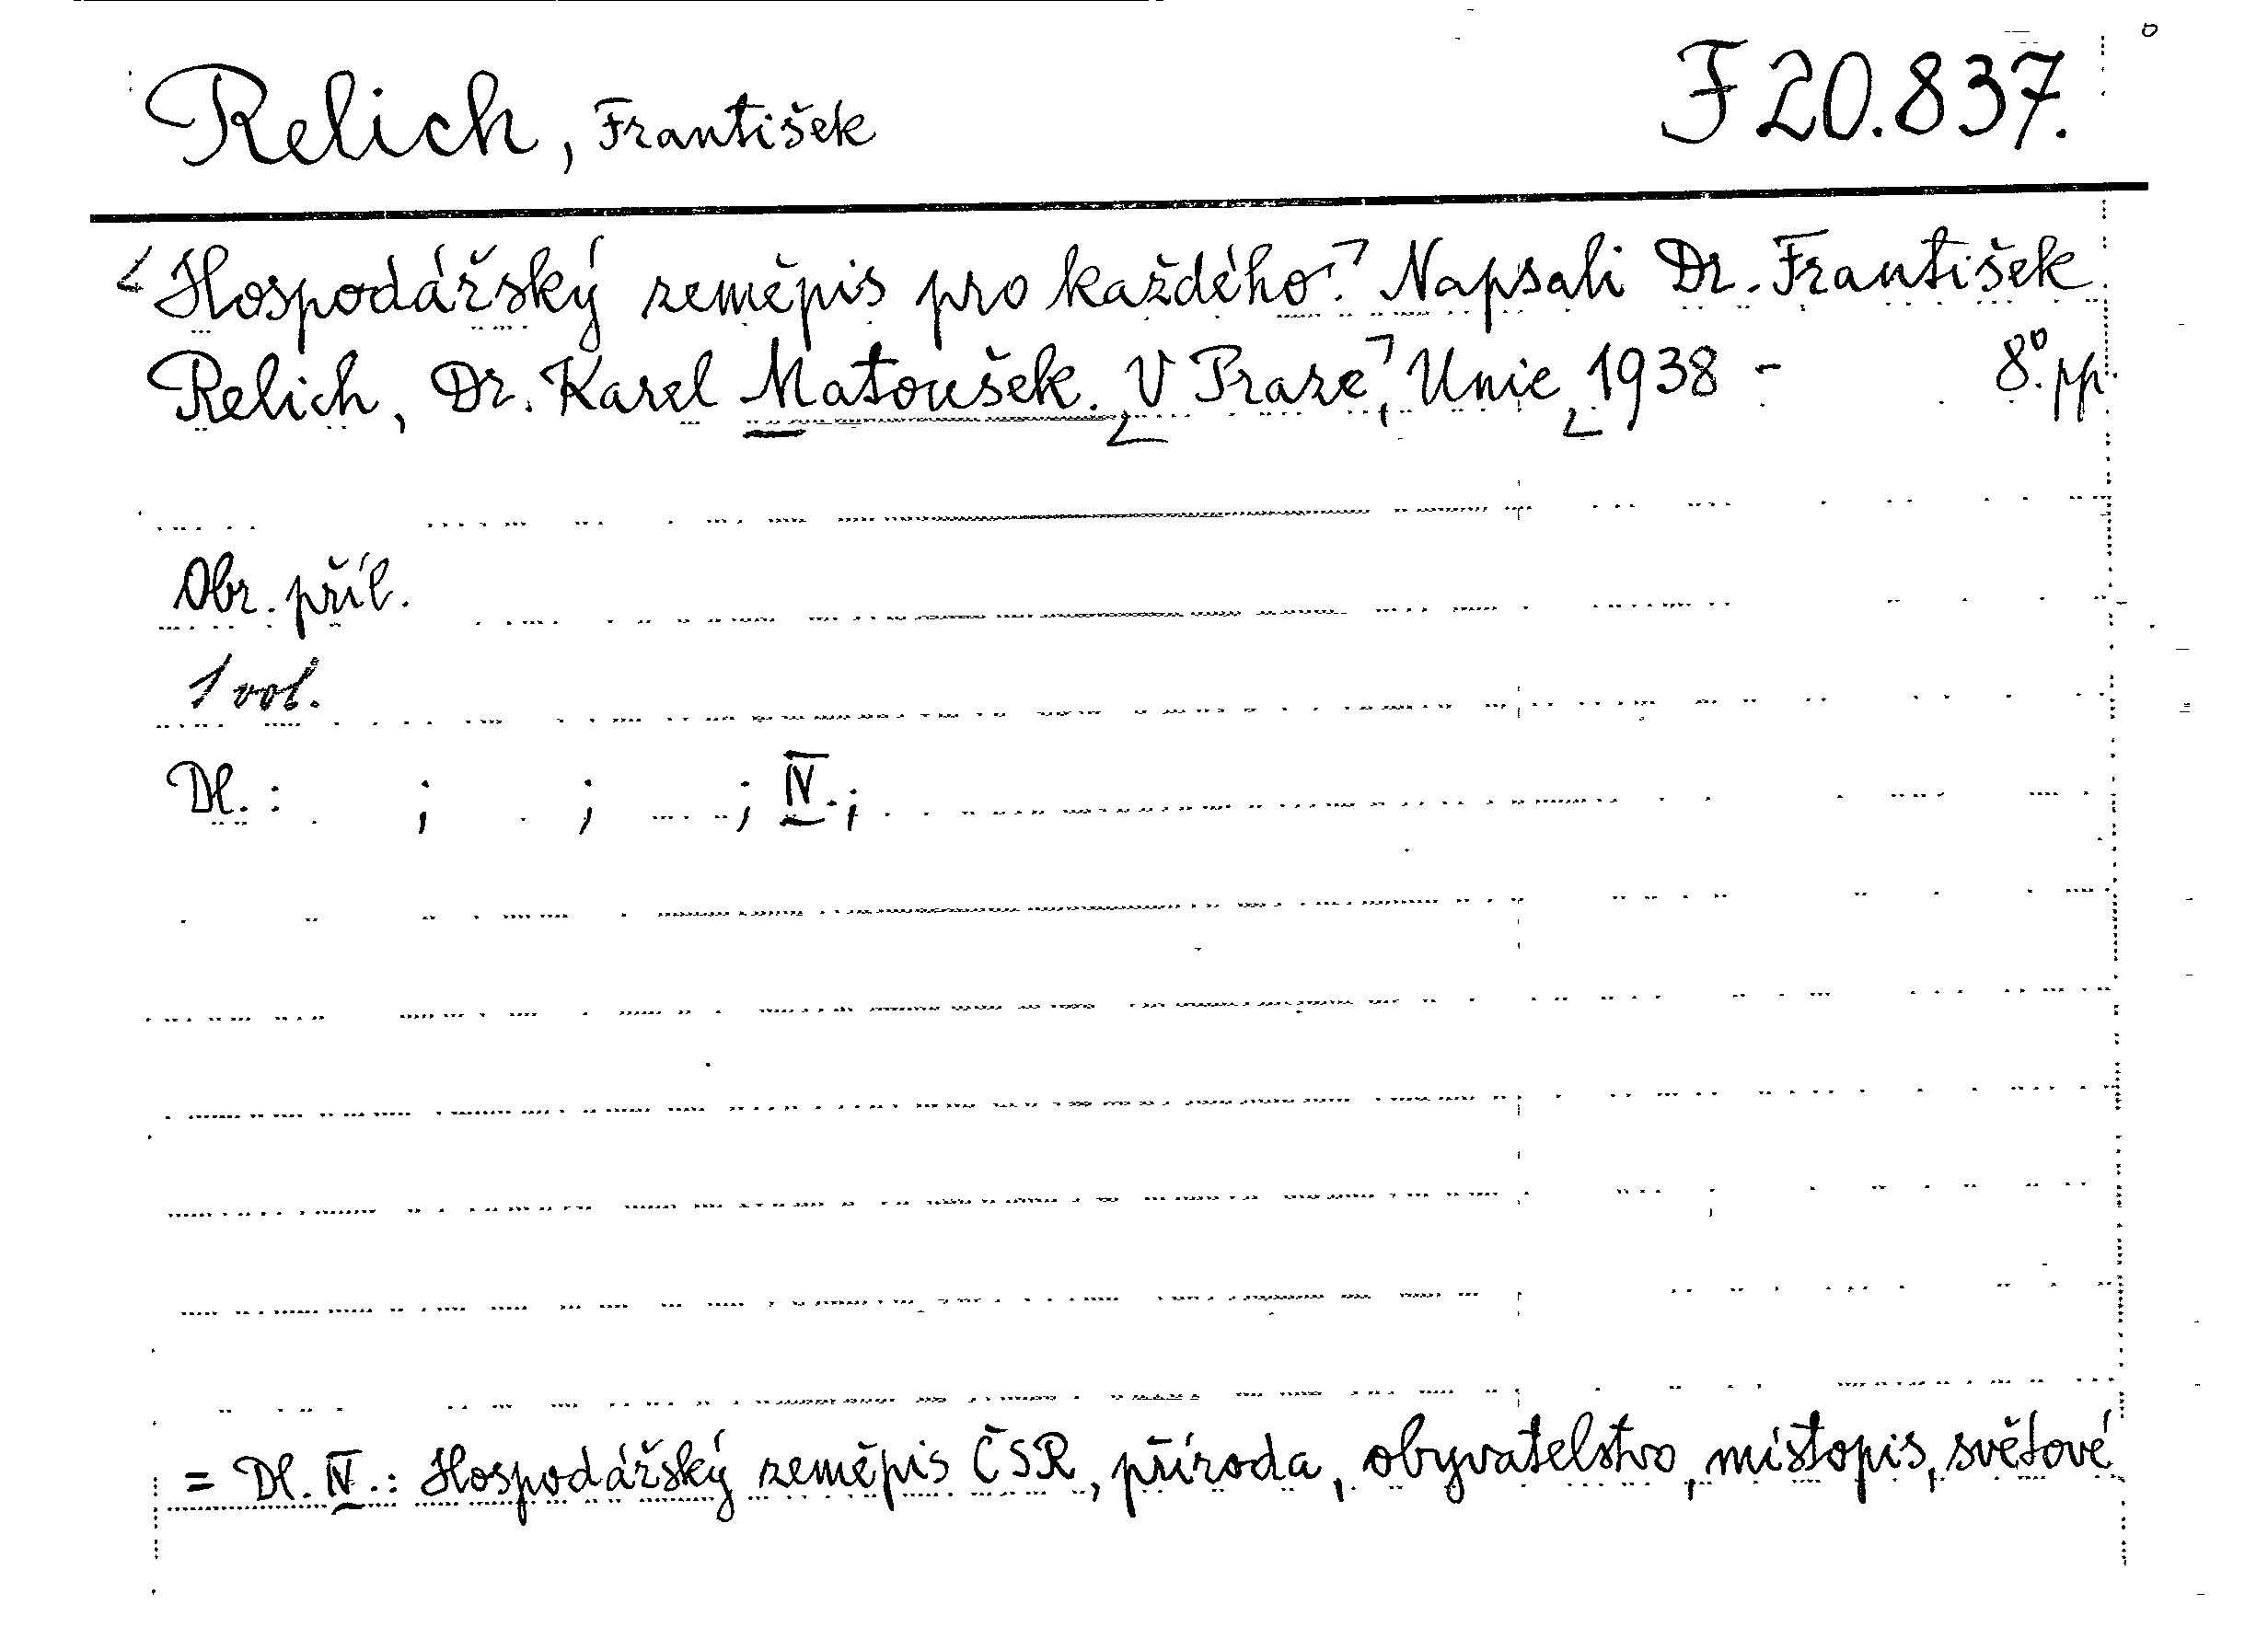 Relich, František F 20.837.
Hospodářský zeměpis pro každého. Napsali Dr. František
Relich, Dr. Karel Matoušek. V Praze, Unie, 1938 - 8°. pp.
Obr. příl.
1 vol.
Dl. : ; ; ; IV. ;
= Dl. IV. : Hospodářský zeměpis ČSR, příroda, obyvatelstvo, místopis, světové